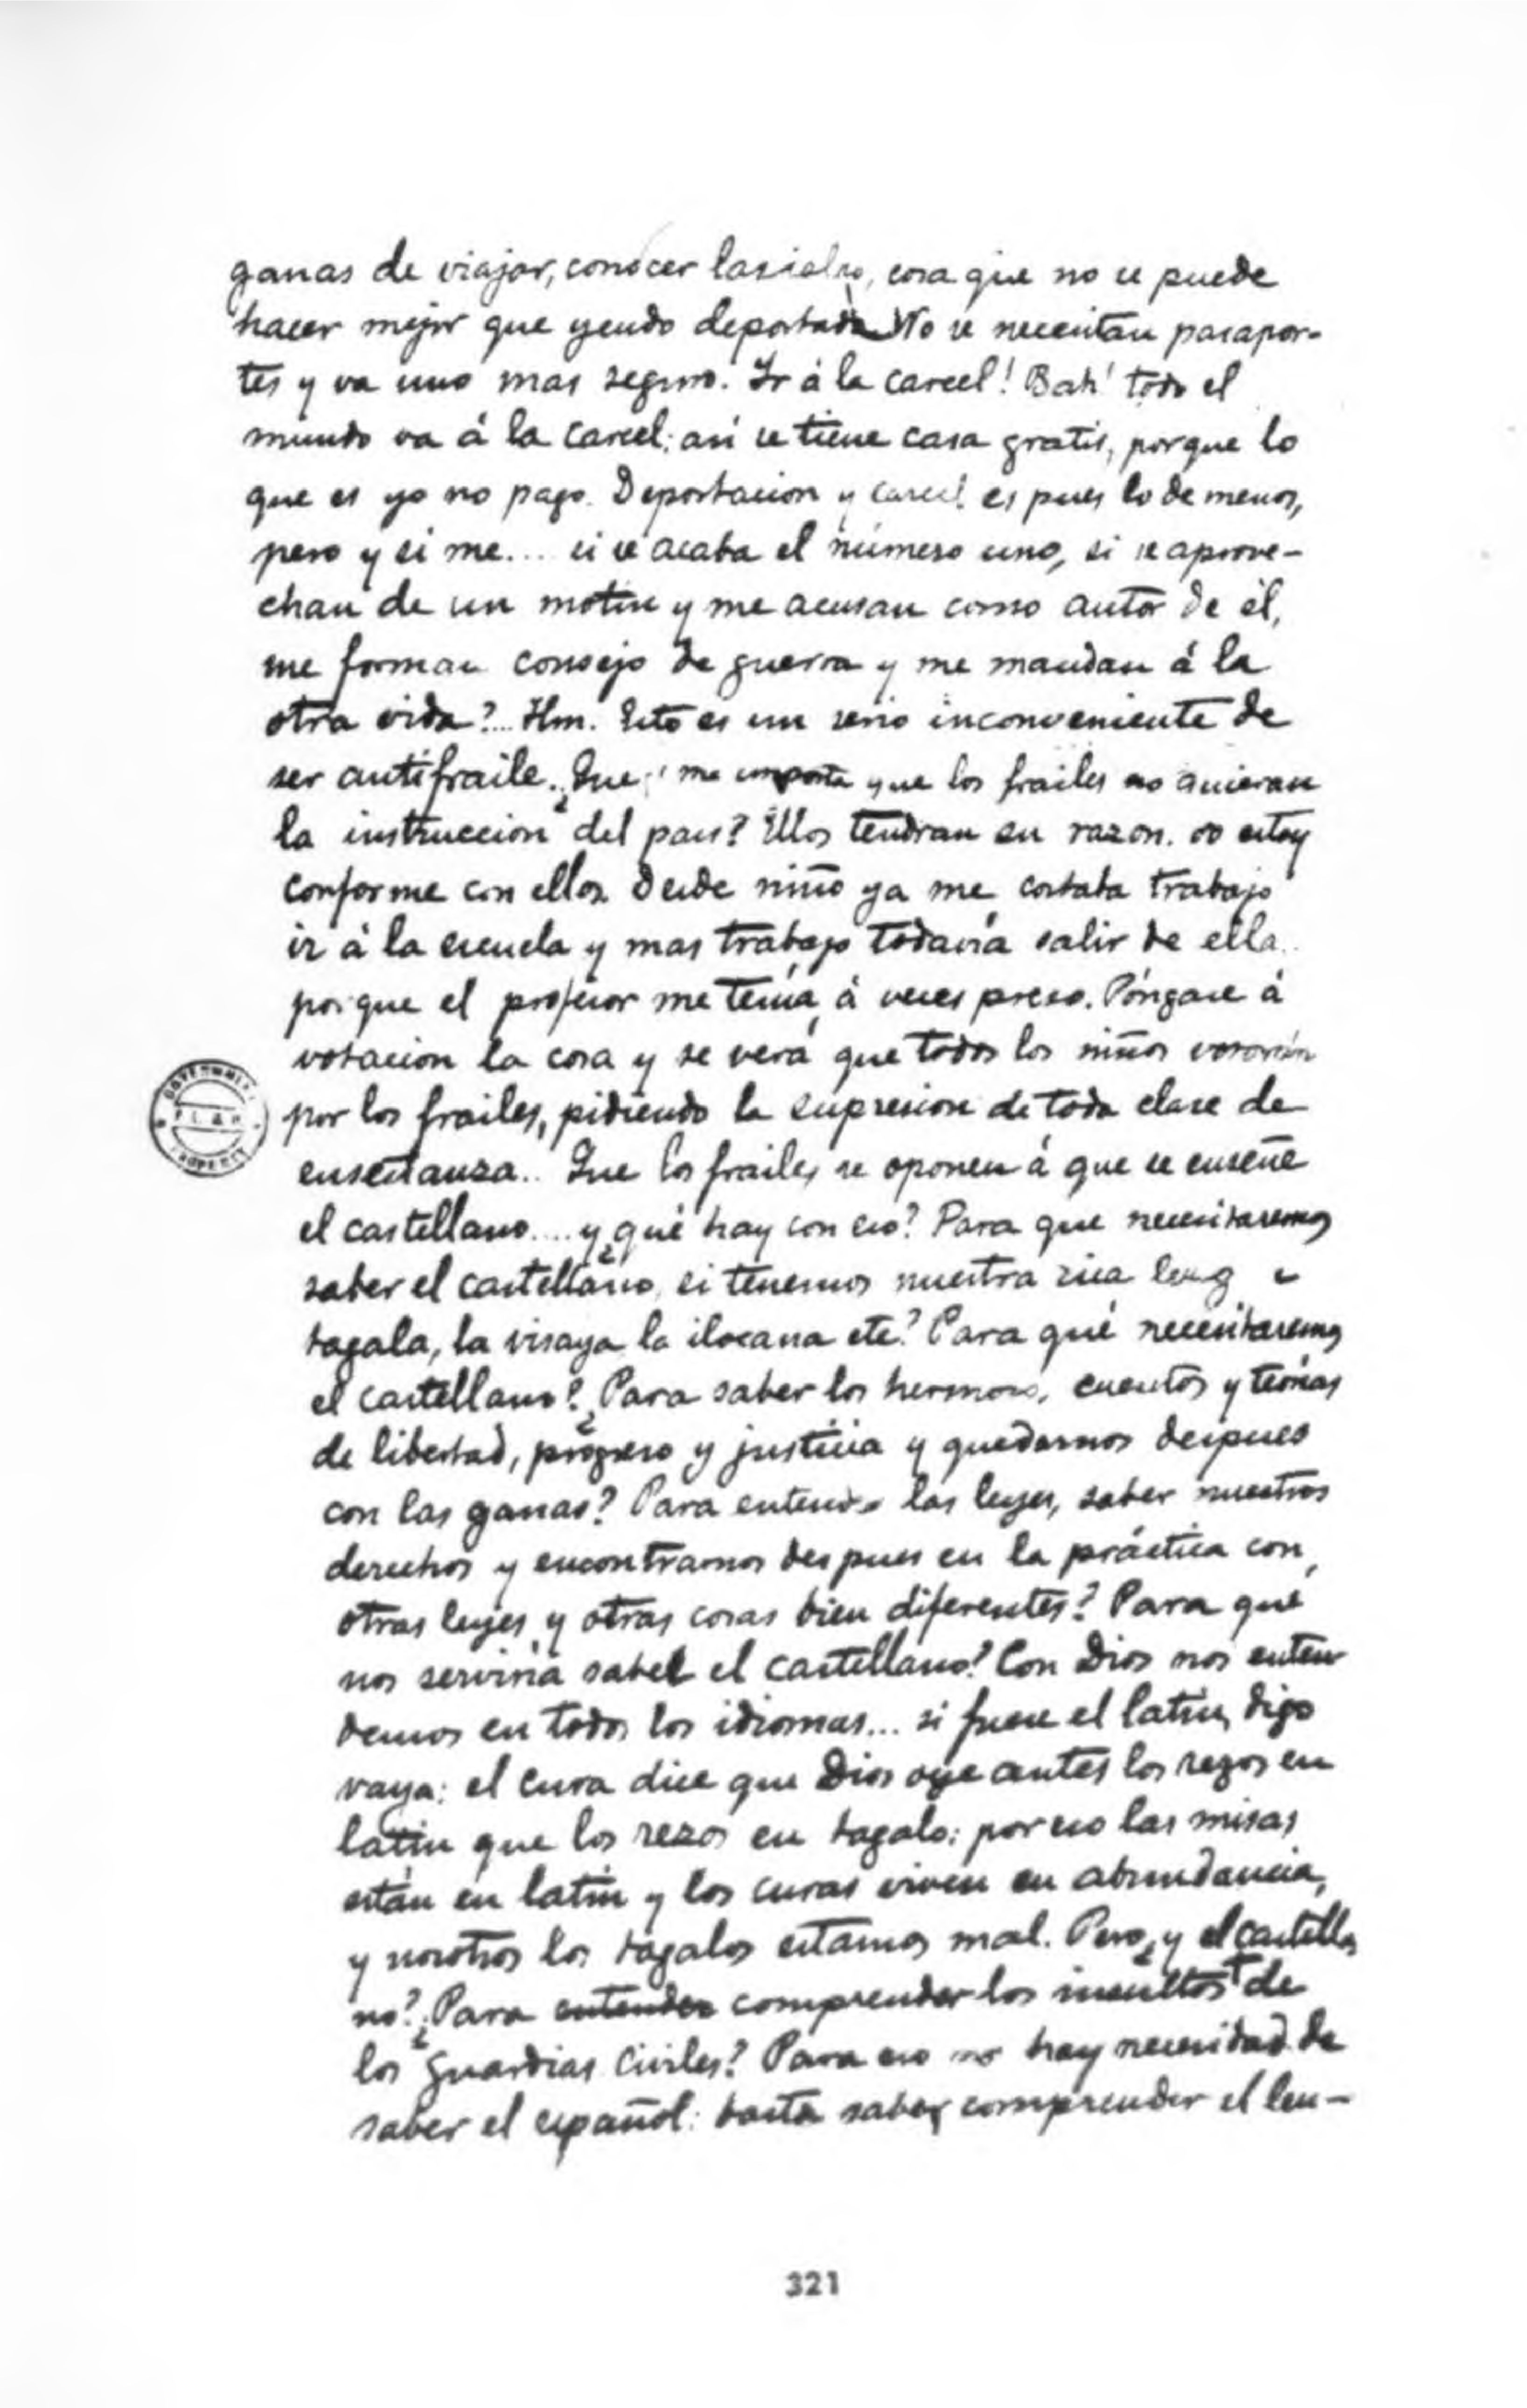 ganas de viajar, conocer las islas, cosa que no se puede
hacer mejor que yendo deportado. No se necesitan pasapor-
tes y va uno mas seguro. Ir á la carcel! Bah! todo el
mundo va á la carcel: asi se tiene casa gratis, porque lo
que es yo no pago. Deportacion y carcel es pues lo de menos,
pero y si me.... si se acaba el número uno, si se aprove-
chan de un motin y me acusan como autor de él,
me forman consejo de guerra y me mandan á la
otra vida?... Hm. Esto es un serio inconveniente de
ser antifraile. ¿Que me importa que los frailes no quieran
la instruccion del pais? Ellos tendran su razon. Yo estoy
conforme con ellos. Desde niño ya me costaba trabajo
ir á la escuela y mas trabajo todavía salir de ella..
porque el profesor me tenía á veces preso. Póngase á
votacion la cosa y se verá que todos los niños votarán
por los frailes, pidiendo la supresion de toda clase de
enseñanza.. Que los frailes se oponen á que se enseñe
el castellano.... y ¿qué hay con eso? Para que necesitaremos
saber el castellano, si tenemos nuestra rica leng
tagala, la visaya la ilocana etc? Para qué necesitaremos
el castellano? ¿Para saber los hermosos, cuentos y teorías
de libertad, progreso y justicia y quedarnos despues
con las ganas? Para entender las leyes, saber nuestros
derechos y encontrarnos despues en la práctica con
otras leyes y otras cosas bien diferentes? Para qué
nos serviria saber el castellano? Con Dios nos enten
demos en todos los idiomas... si fuese el latin, digo
vaya: el cura dice que Dios oye antes los rezos en
latin que los rezos en tagalo: por eso las misas
están en latín y los curas viven en abundancia,
y nosotros los tagalos estamos mal. Pero ¿y el castella
no? ¿Para entender comprender los insultos de
los guardias civiles? Para eso no hay necesidad de
saber el español: basta saber comprender el len-
GOVERNMENT
PROPERTY
321